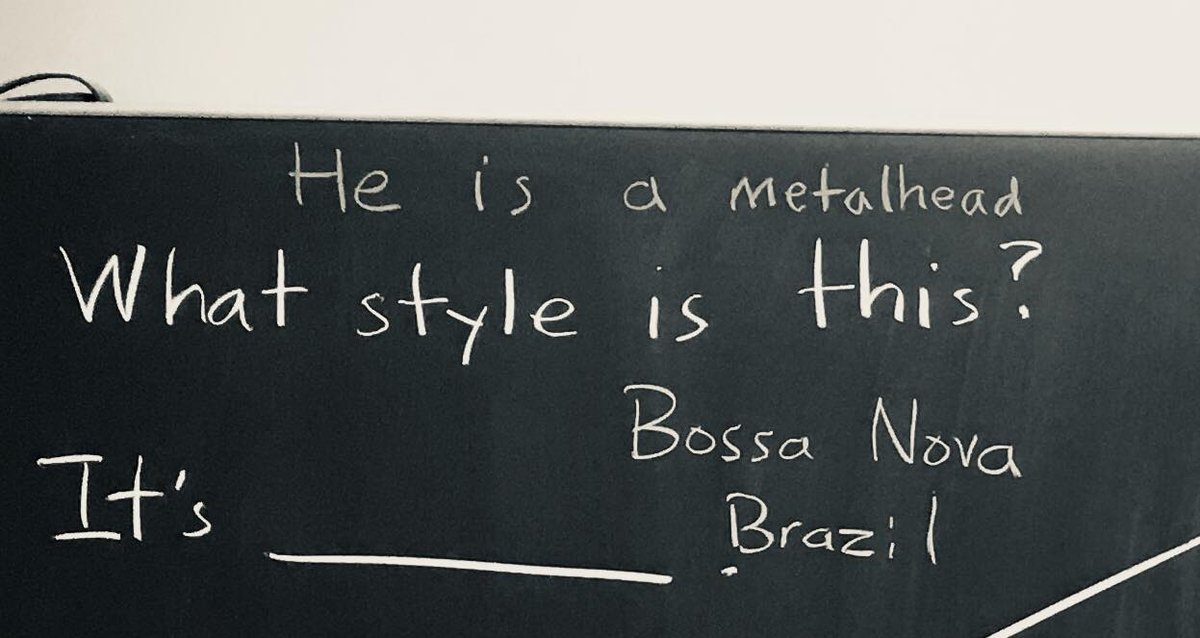 He is a metalhead
What style is this?
Bossa Nova
It's ________ . Brazil